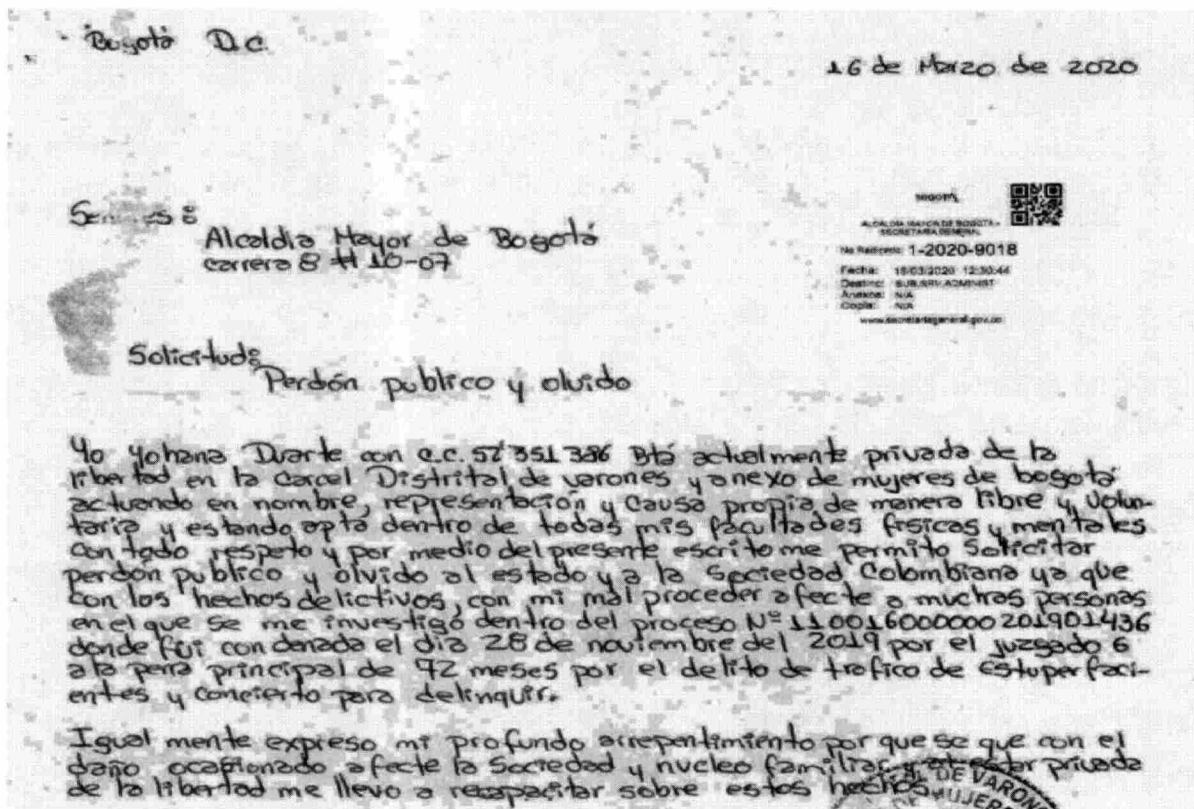 Bogotá D.C.
16 de Marzo de 2020
BOGOTÁ
ALCALDIA MAYOR DE BOGOTA
SECRETARIA GENERAL
No Radicado: 1-2020-9018
Fecha: 18/03/2020 12:30:44
Destino: SUB.SRV.ADMINIST
Anexos: N/A
Copia: N/A
www.secretariageneral.gov.co
Alcaldia Mayor de Bogotá
carrera 8 # 10-07
Solicitud:
Perdón publico y olvido
Yo Yohana Duarte con c.c. 52 351 386 Btá actualmente privada de la
libertad en la Carcel Distrital de varones y anexo de mujeres de bogotá
actuando en nombre, representación y causa propia de manera libre y volun-
taria y estando apta dentro de todas mis facultades fisicas y mentales
con todo respeto y por medio del presente escrito me permito Solicitar
perdón publico y olvido al estado y a la Sociedad Colombiana ya que
con los hechos delictivos, con mi mal proceder afecte a muchas personas
en el que se me investigó dentro del proceso Nº 110016000000201901436
donde fui condenada el dia 28 de noviembre del 2019 por el juzgado 6
a la pena principal de 72 meses por el delito de trafico de Estuperfaci-
entes y concierto para delinquir.
Igual mente expreso mi profundo arrepentimiento por que se que con el
daño ocasionado afecte la Sociedad y nucleo familiar y al estar privada
de la libertad me llevo a recapacitar sobre estos hechos
DE VARON
MUJERE